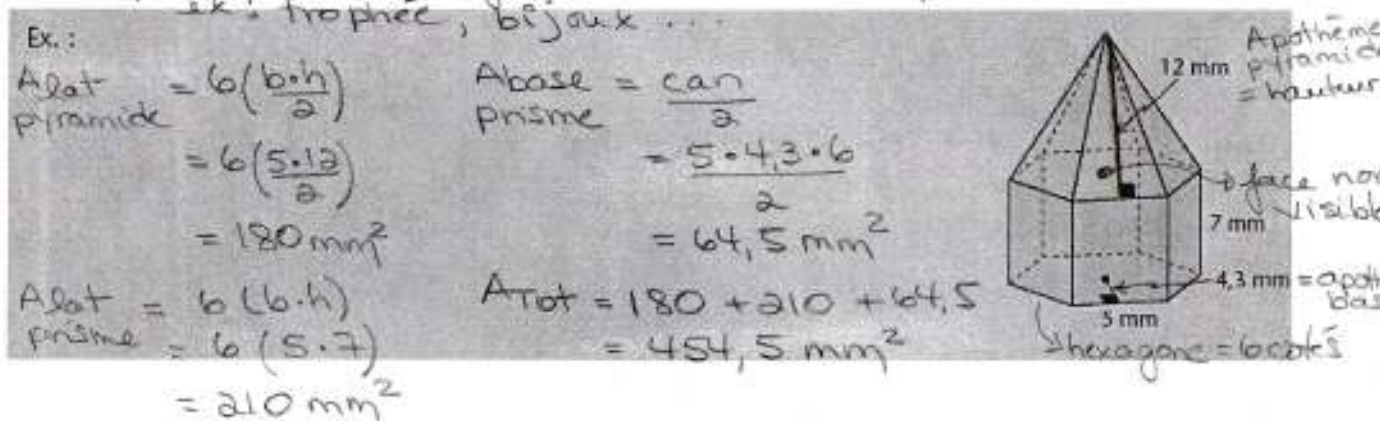 ex: trophée, bijoux ...
Ex. :
Alat pyramide = 6(b·h/2)
= 6(5·12/2)
= 180 mm²
Alat prisme = 6(b·h)
= 6(5·7)
= 210 mm²
Abase prisme = can/2
= 5·4,3·6/2
= 64,5 mm²
ATot = 180 + 210 + 64,5
= 454,5 mm²
12 mm
Apothème
pyramide
= hauteur
face non
visible
7 mm
4,3 mm =
5 mm
hexagone = 6 cotés